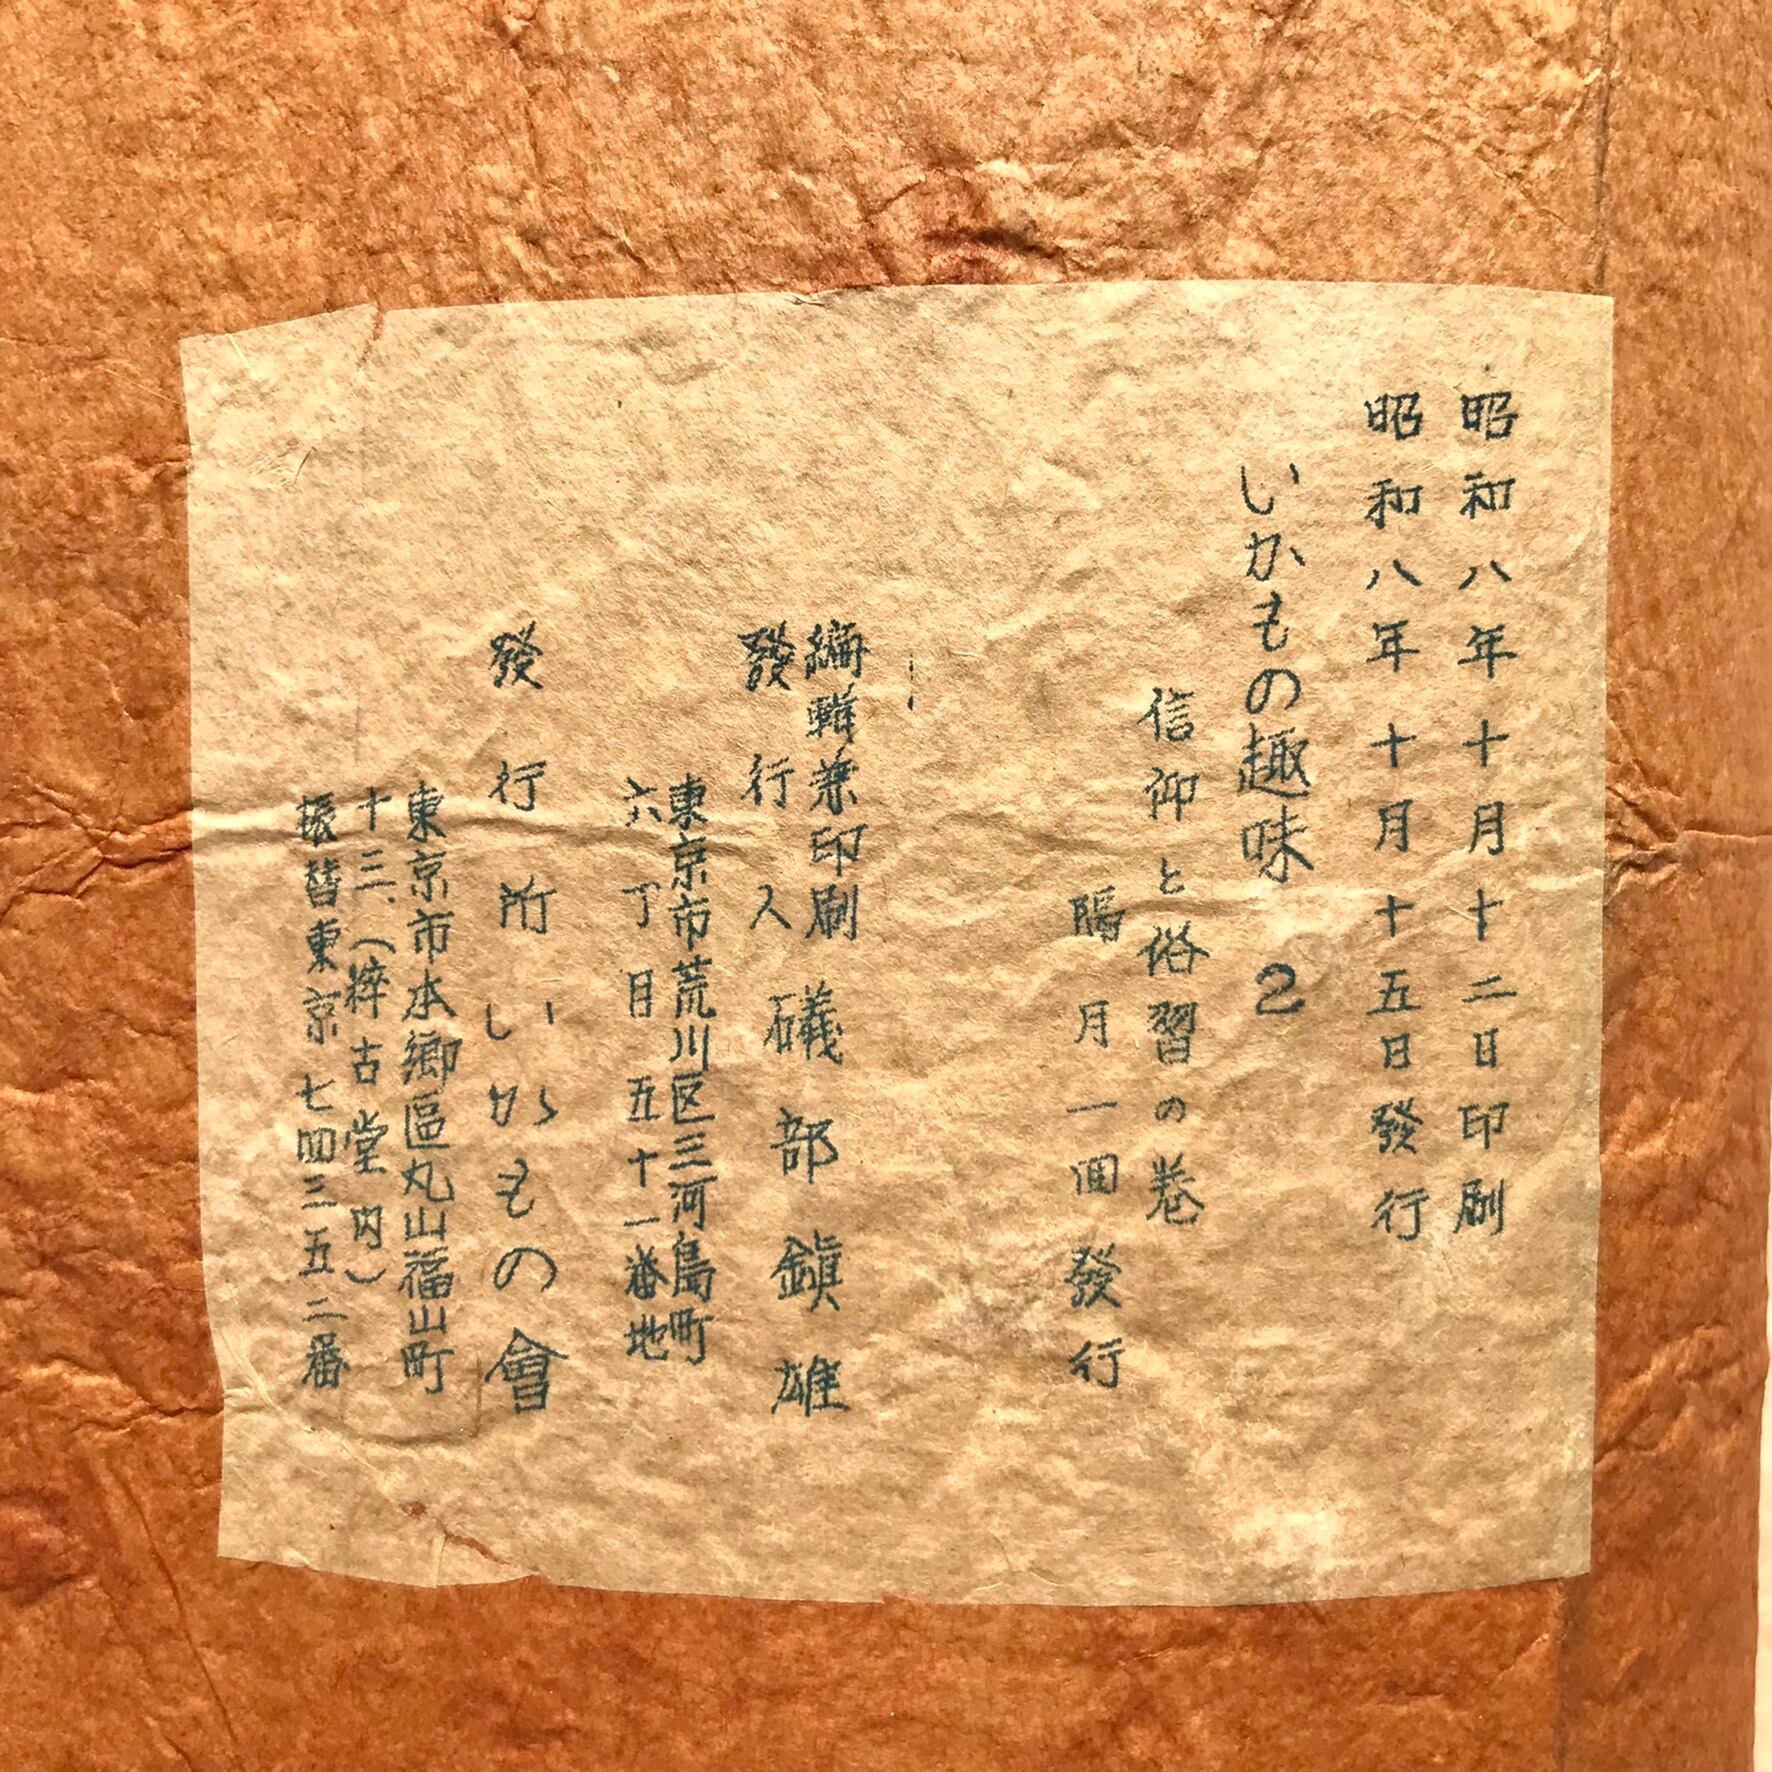 昭和八年十月十二日印刷
昭和八年十月十五日發行
いかもの趣味 2
信仰と俗習の卷
隔月一回發行
編輯兼印刷
發行人
礒部鎭雄
東京市荒川区三河島町
六丁目五十一番地
發行所 いかもの會
東京市本郷區丸山福山町
十三、(粹古堂内)
振替東京七四三五二番